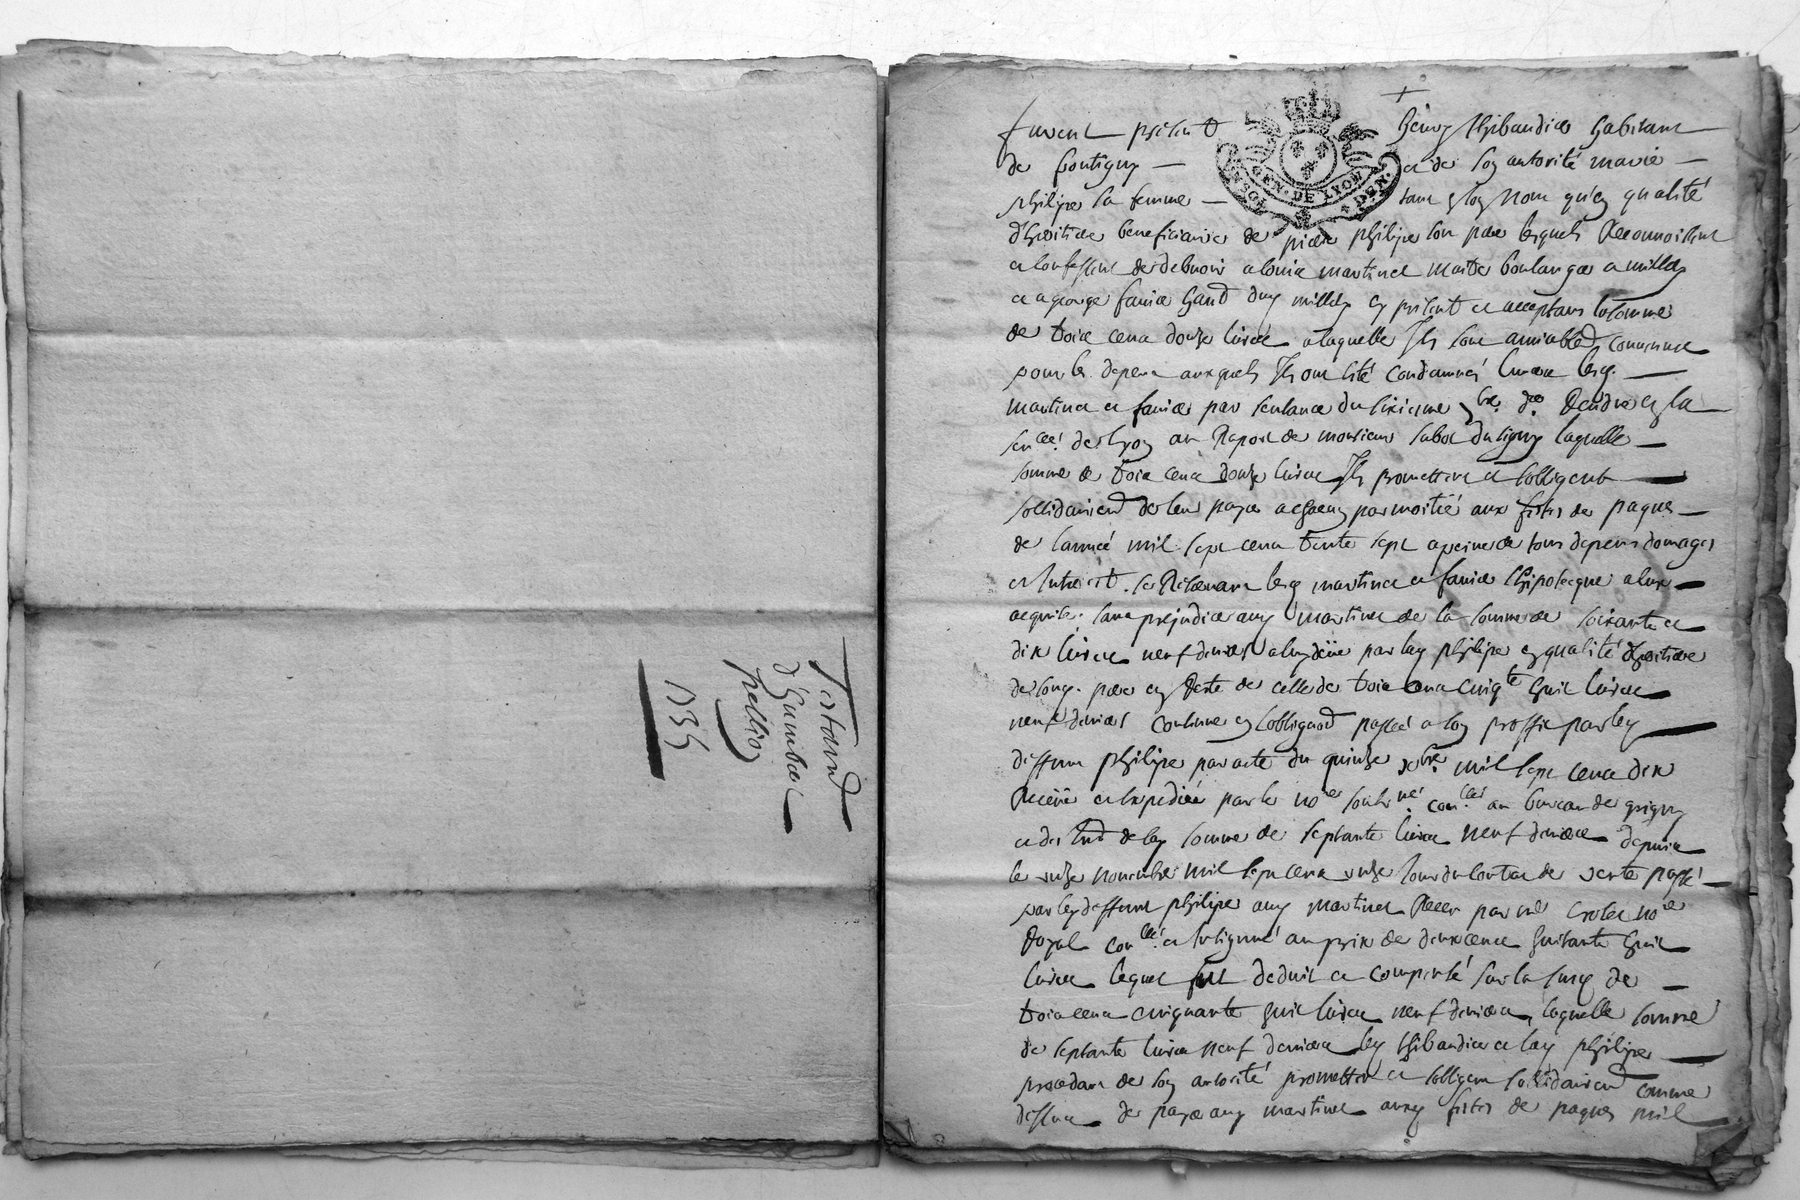 Testamt
d'humbert
pellion
1735
furent présents Benoy Thibaudier habitant
de Pontigny et de son autorité marie
philipe sa femme tant en son nom qu'en qualité
d'heritiere beneficiaire de pierre philipe son pere lesquels Reconnoissent
et confessent de debvoir a louis martinet maitre boulanger a millery
et a george favier habt dud millery cy present et acceptans la somme
de trois cents douze livres a laquelle Ils sont amiablemt convenus
pour les depens auxquels Ils ont esté condamnés envers lesd.
martinet et favier par sentance du sixieme 7bre dr Rendue en la
senee de Lyon au Raport de monsieur laquelle
somme de trois cents douze livres Ils promettent et sobligent
sollidairemt de leur payer a chacun par moitié aux festes de paques
de lannée mil sept cens trente sept a peine de tous depens domages
et Interests. se Reservant lesd martinet et favier lhipotecque a eux
acquise. sans prejudice aud martinet de la somme de soixante et
dix livres neuf deniers a luy düe par lad philipe en qualité dheritiere
de sond. pere en Reste de celle de trois cens cinqte huit livres
neuf deniers contenue en lobligaon passée a son proffit par led
deffunt philipe par acte du quinze xbre mil sept cens dix
Receüe et expediée par le nore soubsné conlee au bureau de grigny
et des Intts de lad somme de septante livres neuf deniers depuis
le onze novembre mil sept cens onze jour du contrat de vente passé
par led deffunt philipe aud martinet Receu par me nore
Royal conlée et Insigniné au prix de deux cens huitante huit
livres lequel fut deduit et compensé sur la sud de
trois cens cinquante huit livres neuf deniers, laquelle somme
de septante livres neuf deniers led thibaudier et lad philipe
procedant de son autorité promettent et sobligent sollidairemt comme
dessus de payer aud martinet auxd festes de paques mil